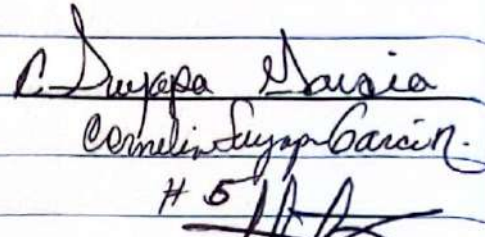 C. Suyapa Garcia
Cornelia Suyapa Garcia R.
# 5